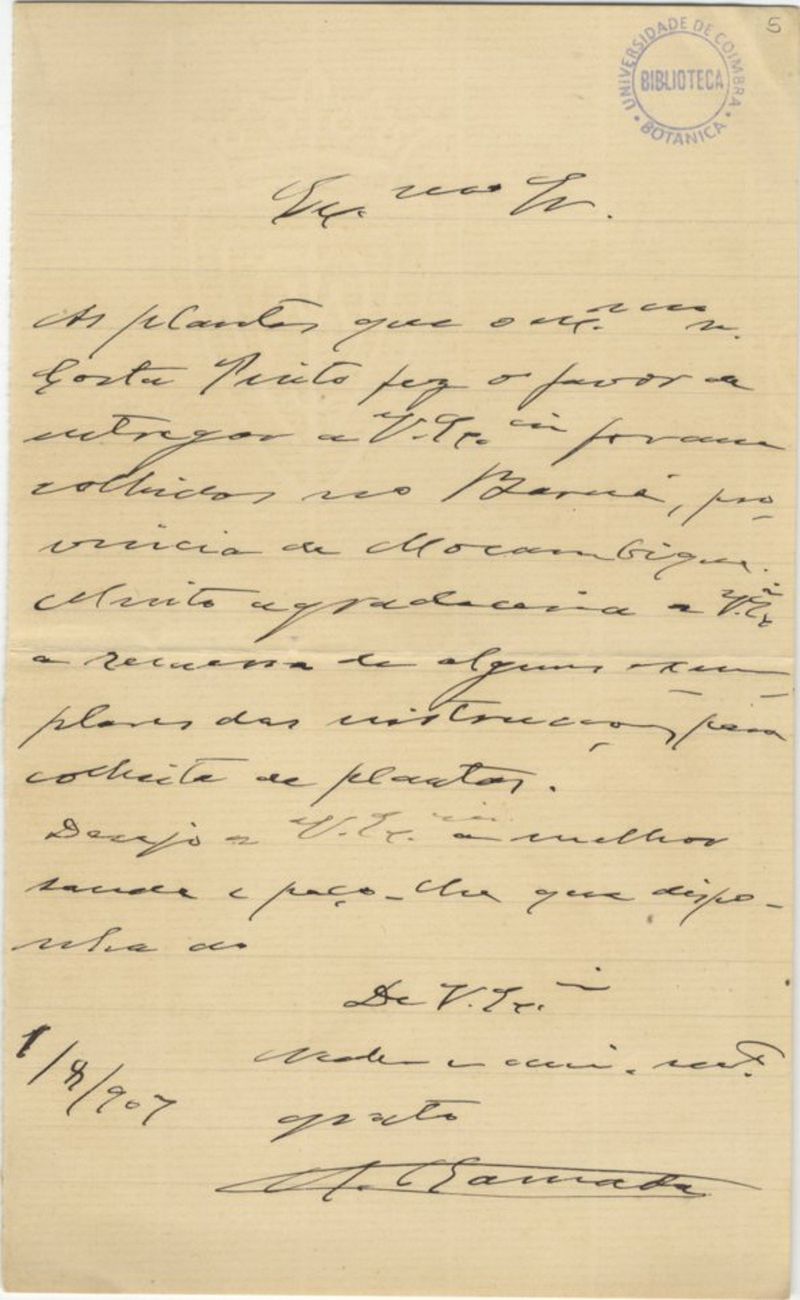 5
UNIVERSIDADE DE COIMBRA
BIBLIOTECA
BOTANICA
Ex.mo Sr.
As plantas que o ex.mo sr.
Costa Pinto fez o favor de
entregar a V. Ex.cia foram
colhidas no Barué, pro-
vincia de Moçambique.
Muito agradeceria a V. Ex.a
a remessa de alguns exem-
plares das instrucções para
colheita de plantas.
Desejo a V. Ex.cia a melhor
saude e peço-lhe que dispo-
nha do
De V. Ex.cia
1/8/907
grato